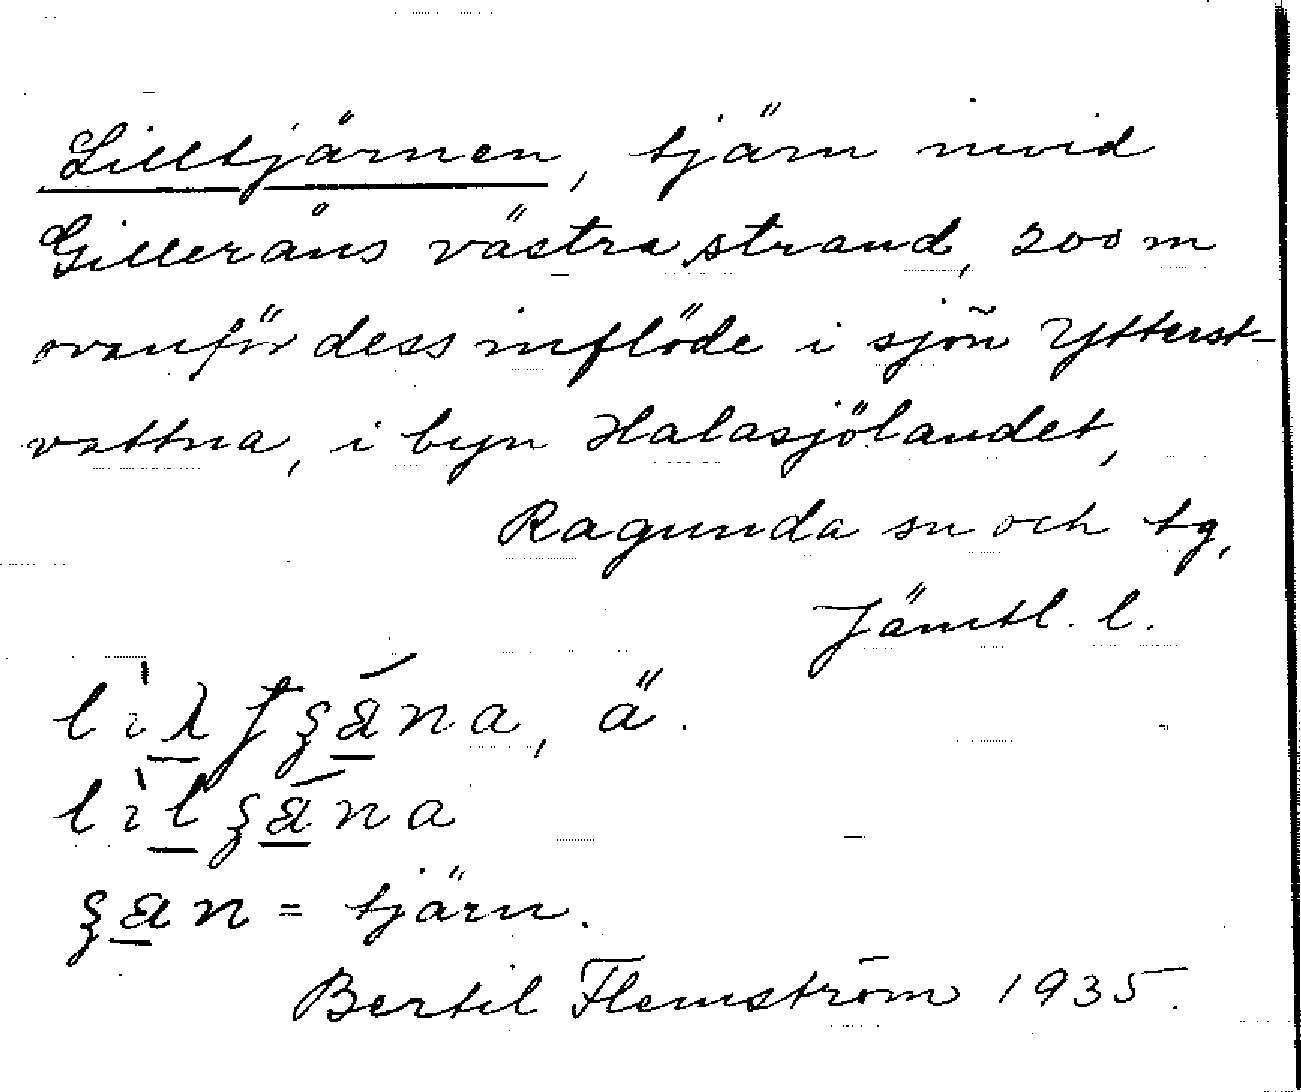 Lilltjärnen, tjärn invid
Gilleråns västra strand, 200 m
ovanför dess inflöde i sjön Ytterst-
vattna, i byn Halasjölandet,
Ragunda sn och tg,
Jämtl. l.
ä.
= tjärn.
Bertil Flemström 1935.